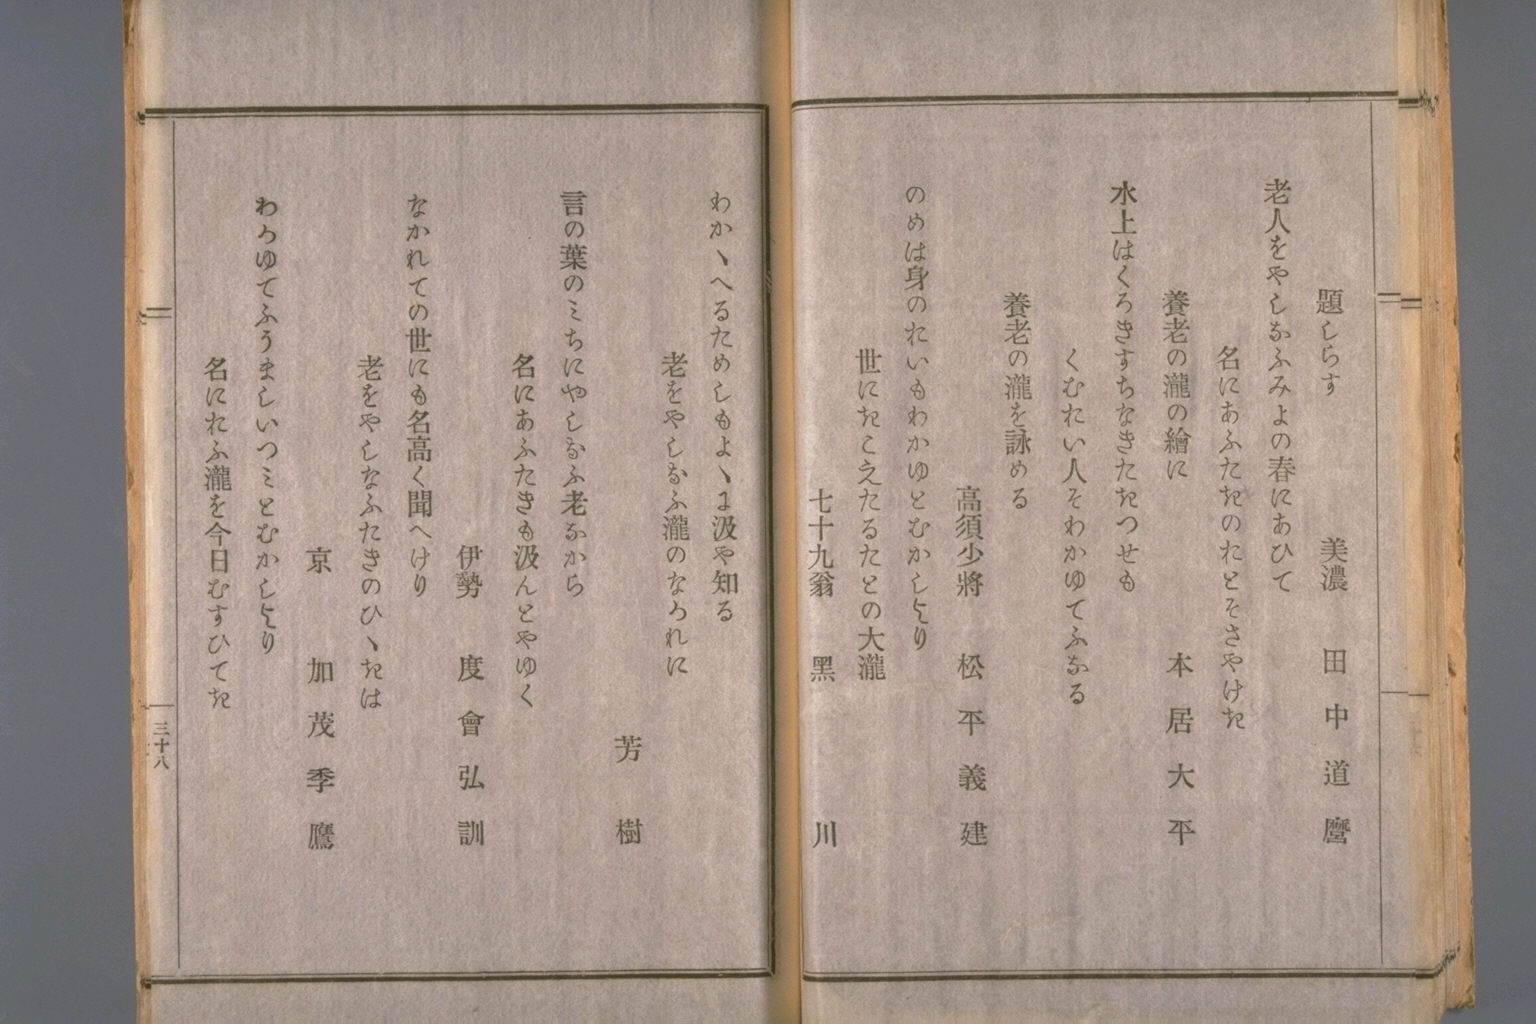 題しらす　美濃　田中道麿
老人をやしなふみよの春にあひて
名にあふたきのれとそさやけき
養老の瀧の繪に　本居大平
水上はくろきすちなきたきつせも
くむれい人そわかゆてふなる
養老の瀧を詠める
高須少將　松平義建
のめは身のれいもわかゆとむかしより
世にきこえたるたとの大瀧
七十九翁　黑川
わかゝへるためしもよゝに汲や知る
老をやしなふ瀧のなかれに
芳樹
言の葉のミちにやしなふ老なから
名にあふたきも汲んとやゆく
伊勢　度會弘訓
なかれての世にも名高く聞へけり
老をやしなふたきのひゝきは
京　加茂季鷹
わかゆてふうましいつミとむかしより
名にれふ瀧を今日むすひてき
三十八